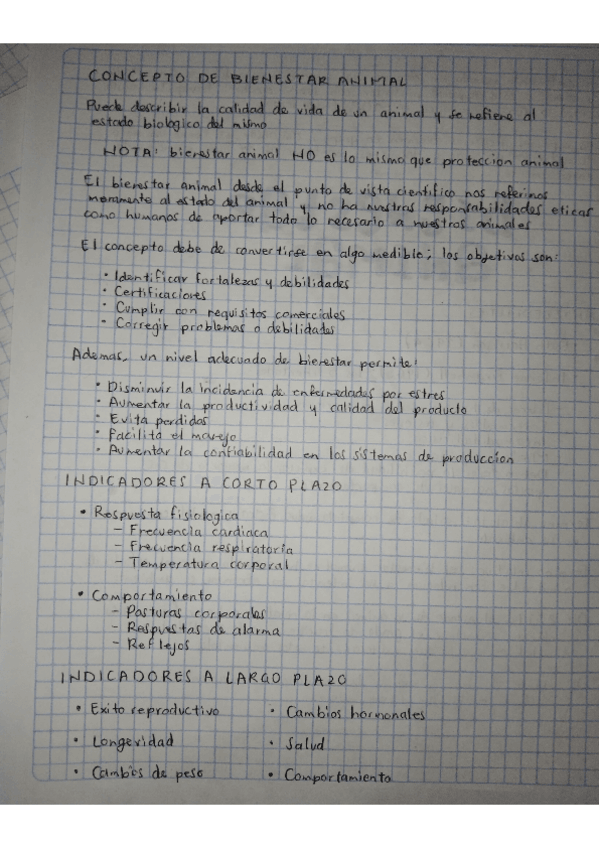 CONCEPTO DE BIENESTAR ANIMAL
Puede describir la calidad de vida de un animal y se refiere al
estado biologico del mismo
NOTA: bienestar animal NO es lo mismo que proteccion animal
El bienestar animal desde el punto de vista cientifico nos referimos
meramente al estado del animal y no ha nuestras responsabilidades eticas
como humanos de aportar todo lo necesario a nuestros animales
El concepto debe de convertirse en algo medible; los objetivos son:
• Identificar fortalezas y debilidades
• Certificaciones
• Cumplir con requisitos comerciales
• Corregir problemas o debilidades
Ademas, un nivel adecuado de bienestar permite:
• Disminuir la incidencia de enfermedades por estres
• Aumentar la productividad y calidad del producto
• Evita perdidas
• Facilita el manejo
• Aumentar la confiabilidad en los sistemas de produccion
INDICADORES A CORTO PLAZO
• Respuesta fisiologica
– Frecuencia cardiaca
– Frecuencia respiratoria
– Temperatura corporal
• Comportamiento
– Posturas corporales
– Respuestas de alarma
– Reflejos
INDICADORES A LARGO PLAZO
• Exito reproductivo • Cambios hormonales
• Longevidad • Salud
• Cambios de peso • Comportamiento